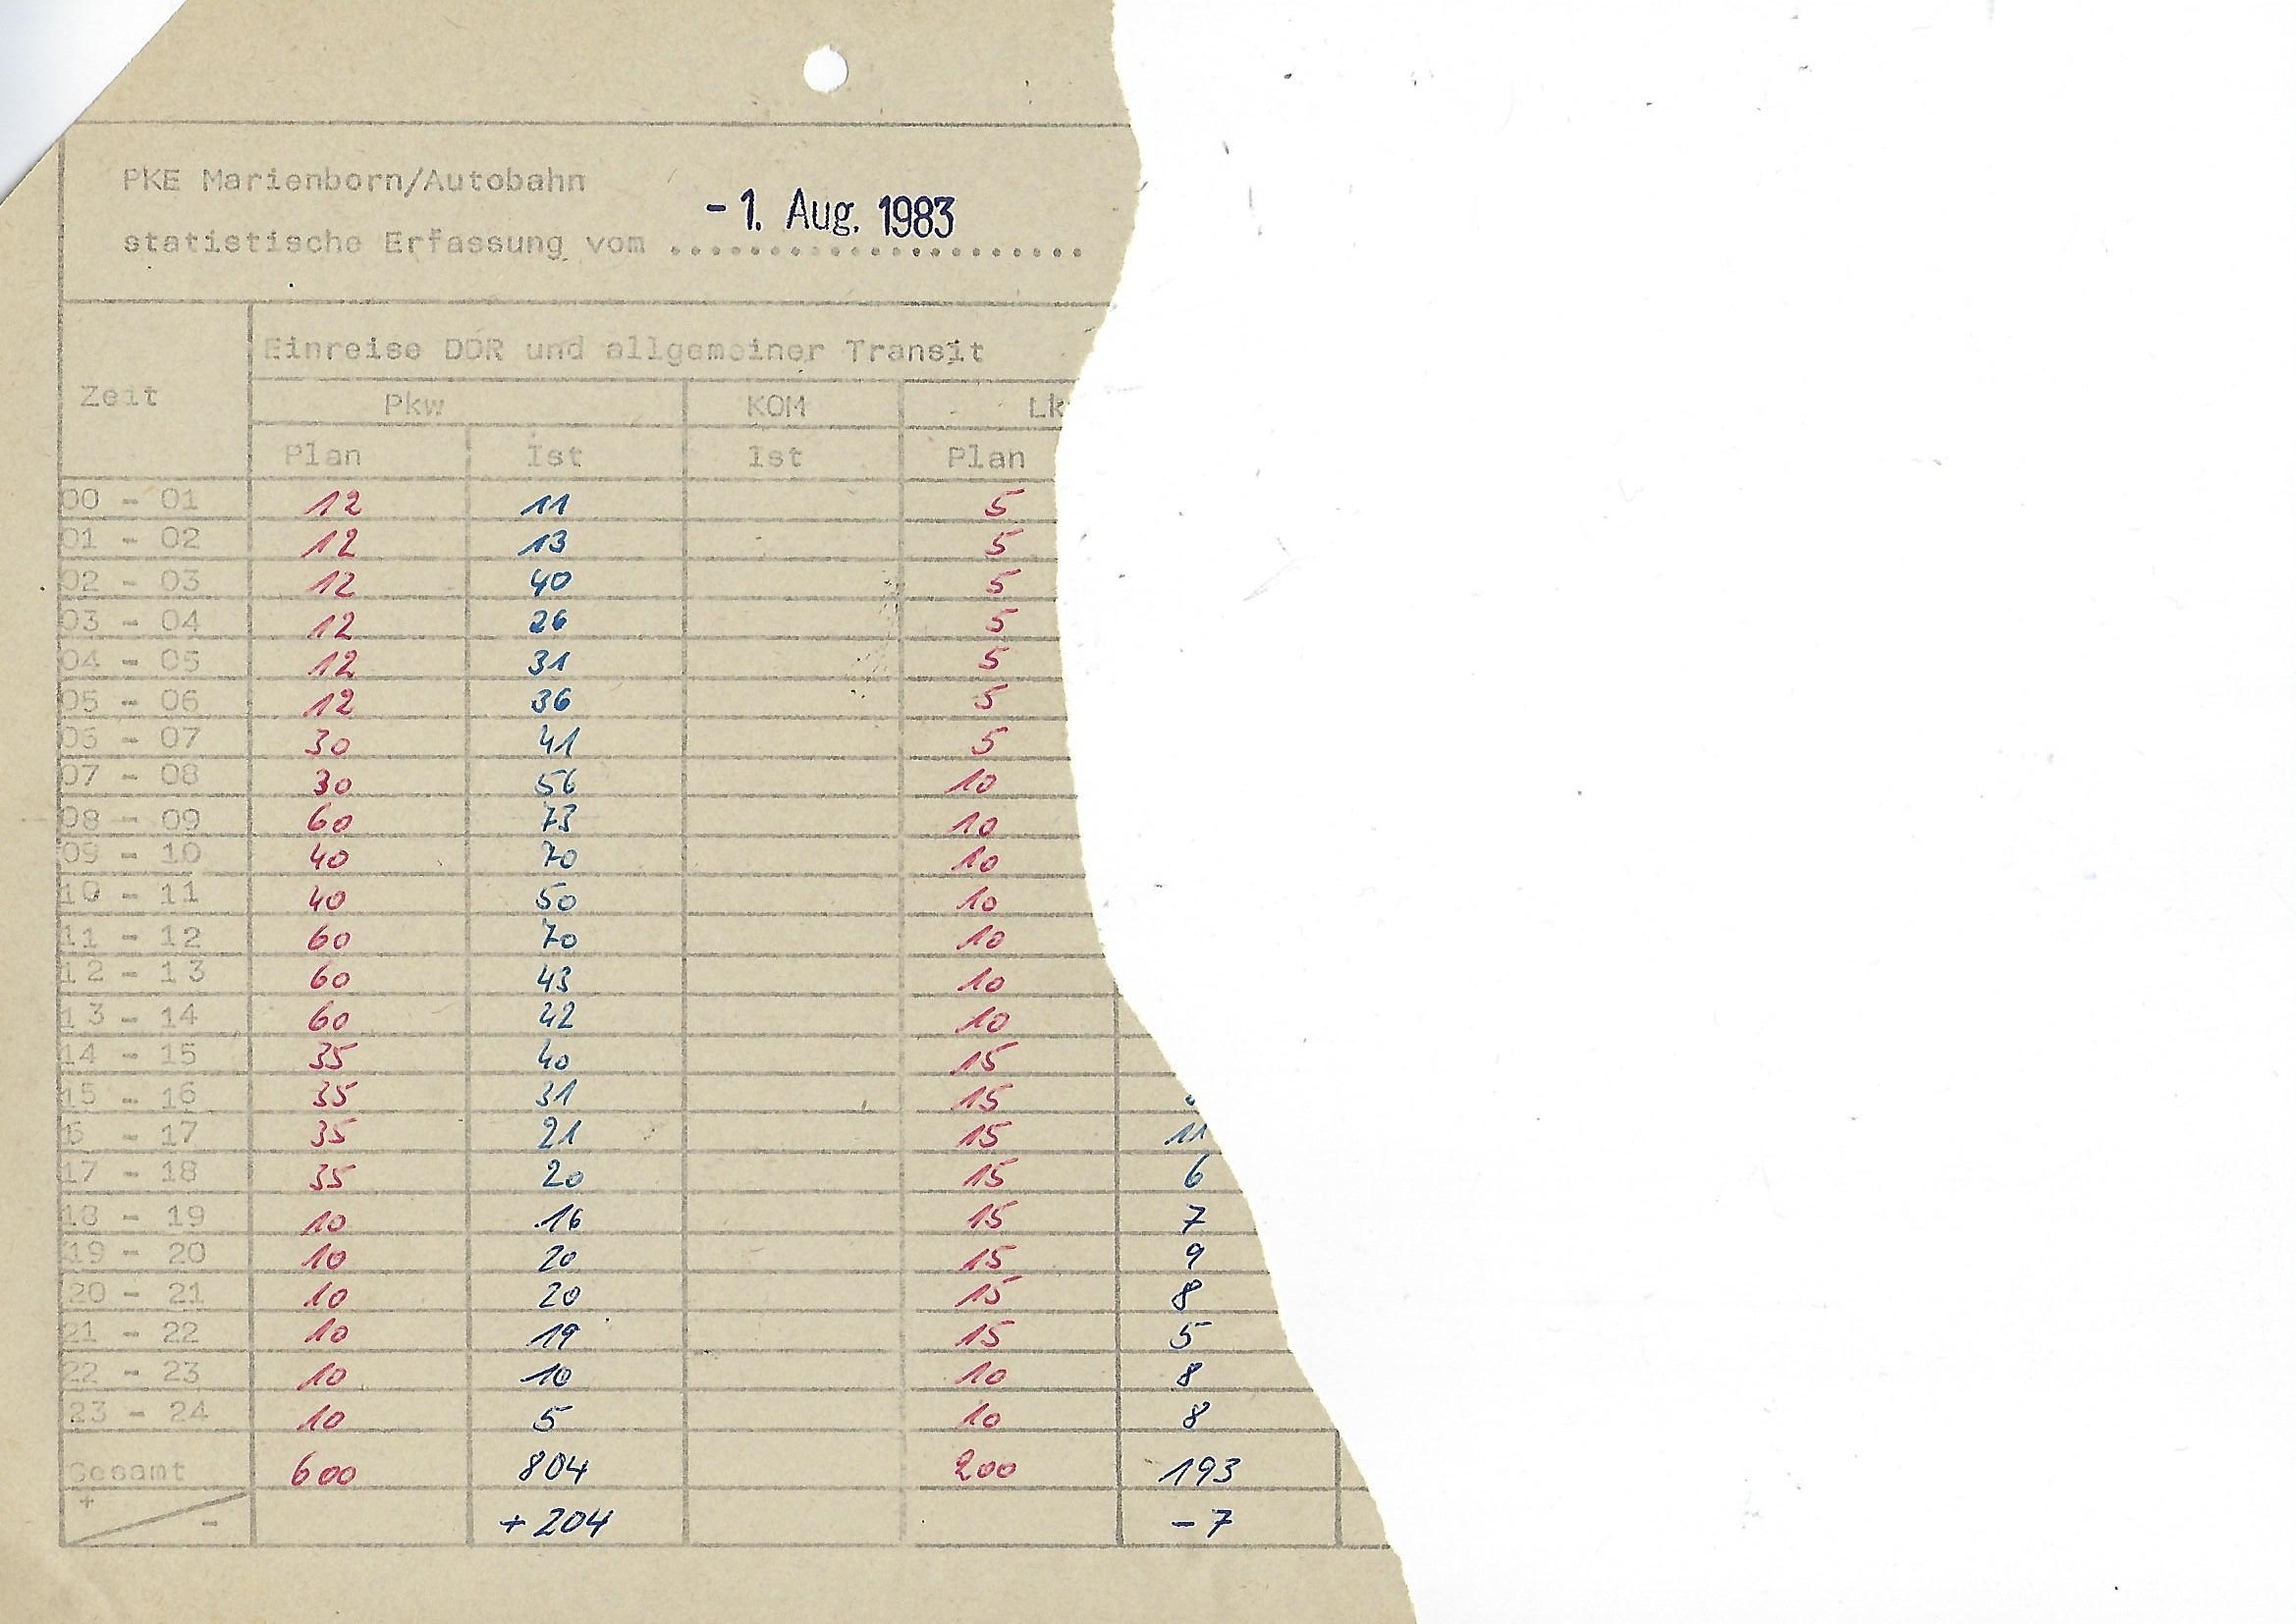 PKE Marienborn/Autobahn
- 1. Aug. 1983
statistische Erfassung vom ......................
Einreise DDR und allgemeiner Transit
Zeit
Pkw KOM Lk
Plan Ist Ist Plan
00 - 01 12 11 5
01 - 02 12 13 5
02 - 03 12 40 5
03 - 04 12 26 5
04 - 05 12 31 5
05 - 06 12 36 5
06 - 07 30 41 5
07 - 08 30 56 10
08 - 09 60 73 10
09 - 10 40 70 10
10 - 11 40 50 10
11 - 12 60 70 10
12 - 13 60 43 10
13 - 14 60 42 10
14 - 15 35 40 15
15 - 16 35 31 15
6 - 17 35 21 15 11
17 - 18 35 20 15 6
18 - 19 10 16 15 7
19 - 20 10 20 15 9
20 - 21 10 20 15 8
21 - 22 10 19 15 5
22 - 23 10 10 10 8
23 - 24 10 5 10 8
Gesamt 600 804 200 193
+ - + 204 - 7